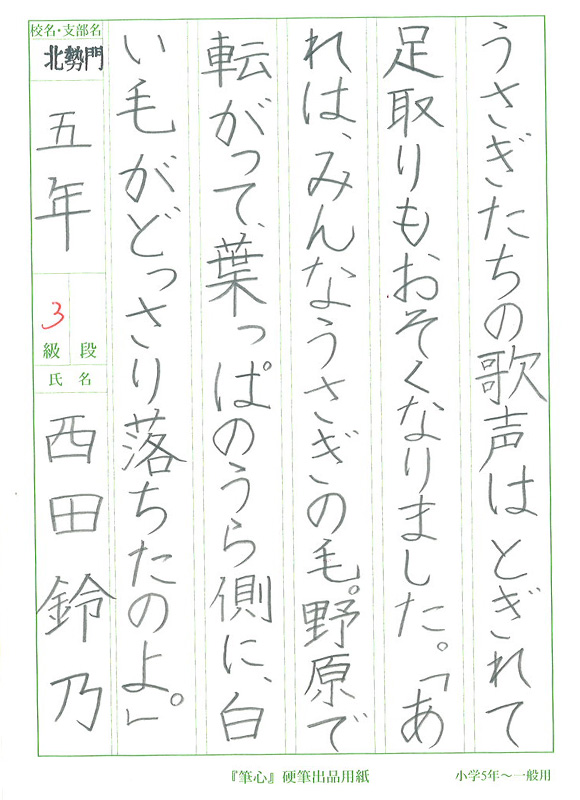 うさぎたちの歌声はとぎれて
足取りもおそくなりました。「あ
れは、みんなうさぎの毛。野原で
転がって、葉っぱのうら側に、白
い毛がどっさり落ちたのよ。」
校名・支部名
北勢門
五年
3
級 段
氏名
西田鈴乃
『筆心』硬筆出品用紙
小学5年〜一般用